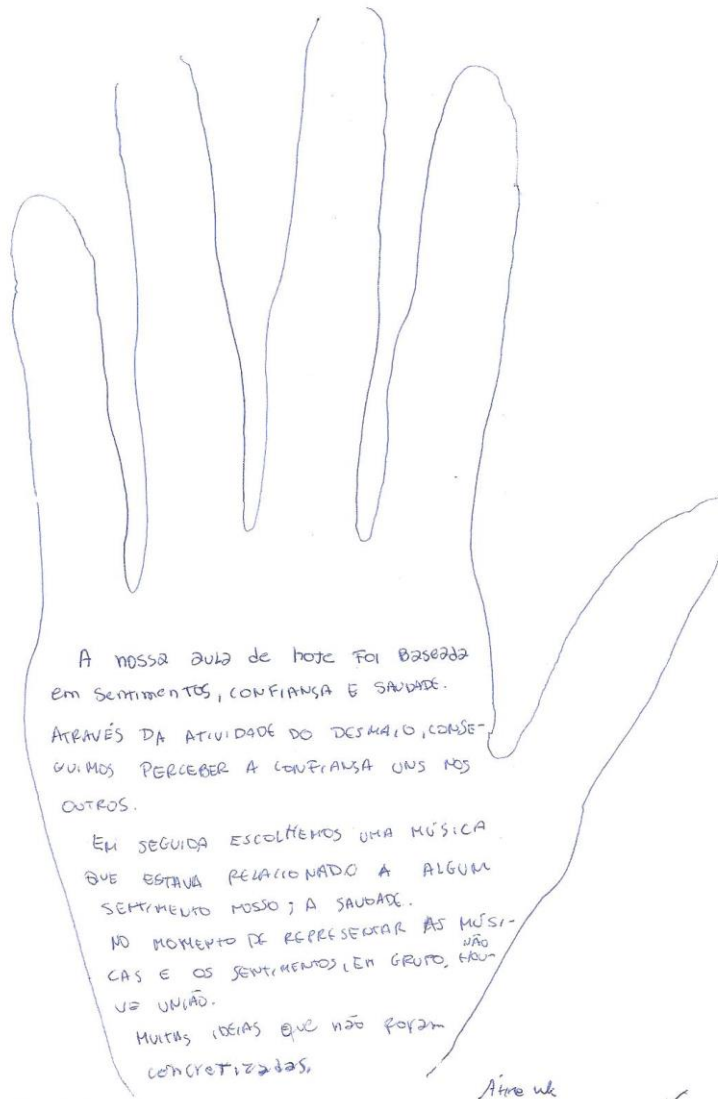 A nossa aula de hoje foi baseada
em sentimentos, CONFIANSA E SAUDADE.
ATRAVÉS DA ATIVIDADE DO DESMAIO, CONSE-
GUIMOS PERCEBER A CONFIANSA UNS NOS
OUTROS.
EM SEGUIDA ESCOLHEMOS UMA MÚSICA
QUE ESTAVA RELACIONADO A ALGUM
SENTIMENTO NOSSO; A SAUDADE.
NO MOMENTO DE REPRESENTAR AS MÚSI-
CAS E OS SENTIMENTOS, EM GRUPO, NÃO HOU-
VE UNIÃO.
MUITAS IDEIAS que não foram
concretizadas.